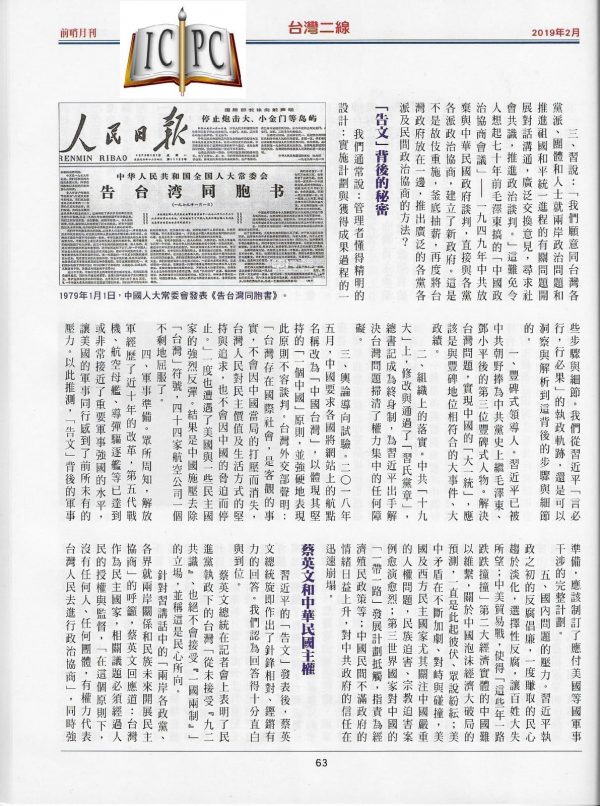 前哨月刊
台灣二線
2019年2月
IC PC
三、習說：「我們願意同台灣各
黨派、團體和人士就兩岸政治問題和
推進祖國和平統一進程的有關問題開
展對話溝通，廣泛交換意見，尋求社
會共識，推進政治談判。」這難免令
人想起七十年前毛澤東搞的「中國政
治協商會議」——一九四九年中共放
棄與中華民國政府談判，直接與各黨
各派政治協商，建立了新政府。這是
不是故伎重施，釜底抽薪，再度將台
灣政府放在一邊，推出廣泛的各黨各
派及民間政治協商的方法？
「告文」背後的秘密
我們通常說：管理者懂得精明的
設計；實施計劃與獲得成果過程的一
人民日报
RENMIN RIBAO
停止炮击大、小金门等岛屿
中华人民共和国全国人大常委会
告台湾同胞书
(一九七九年一月一日)
1979年1月1日，中國人大常委會發表《告台灣同胞書》。
些步驟與細節，我們從習近平「言必
行，行必果」的執政軌跡，還是可以
洞察與解析到這背後的步驟與細節
的。
一、豐碑式領導人。習近平已被
中共朝野捧為中共黨史上繼毛澤東、
鄧小平後的第三位豐碑式人物。解決
台灣問題，實現中國的「大一統」，應
該是與豐碑地位相符合的大事件、大
政績。
二、組織上的落實。中共「十九
大」上，修改與通過了「習氏黨章」，
總書記成為終身制，為習近平出手解
決台灣問題掃清了權力集中的任何障
礙。
三、輿論導向試驗。二〇一八年
五月，中國要求各國將網站上的航點
名稱改為「中國台灣」，以體現其堅
持的「一個中國」原則，並強硬地表現
此原則不容談判。台灣外交部聲明：
「台灣存在國際社會，是客觀的事
實，不會因中國當局的打壓而消失，
台灣人民對民主價值及生活方式的堅
持與追求，也不會因中國的脅迫而停
止。」一度也遭遇了美國與一些民主國
家的強烈反彈。結果是中國施壓去除
「台灣」符號，四十四家航空公司一個
不剩地屈服了。
四、軍事準備。眾所周知，解放
軍經歷了近十年的改革，第五代戰
機、航空母艦、導彈驅逐艦等已達到
或非常接近了重要軍事強國的水平，
讓美國的軍事同行感到了前所未有的
壓力。以此推測，「告文」背後的軍事
準備，應該制訂了應付美國等國軍事
干涉的完整計劃。
五、國內問題的壓力。習近平執
政之初的反腐倡廉，一度賺取的民心
趨於淡化，選擇性反腐，讓百姓大失
所望；中美貿易戰，使得「這些年一路
跌跌撞撞」第二大經濟實體的中國難
以維繫，關於中國泡沫經濟大破局的
預測，一直是此起彼伏、眾說紛紜；美
中矛盾在不斷加劇、對峙與碰撞，美
國及西方民主國家尤其關注中國嚴重
的人權問題、民族迫害、宗教迫害案
例愈演愈烈；第三世界國家對中國的
「一帶一路」發展計劃抵觸，指責為經
濟殖民政策等；中國民間不滿政府的
情緒日益上升，對中共政府的信任在
迅速崩塌。
蔡英文和中華民國主權
習近平的「告文」發表後，蔡英
文總統旋即作出了針鋒相對、鏗鏘有
力的回答。我們認為回答得十分直白
與到位。
蔡英文總統在記者會上表明了民
進黨執政下的台灣「從未接受『九二
共識』，也絕不會接受『一國兩制』」
的立場，並稱這是民心所向。
針對習講話中的「兩岸各政黨、
各界就兩岸關係和民族未來開展民主
協商」的呼籲，蔡英文回應道：台灣
作為民主國家，相關議題必須經過人
民的授權與監督，「在這個原則下，
沒有任何人、任何團體，有權力代表
台灣人民去進行政治協商」，同時強
63